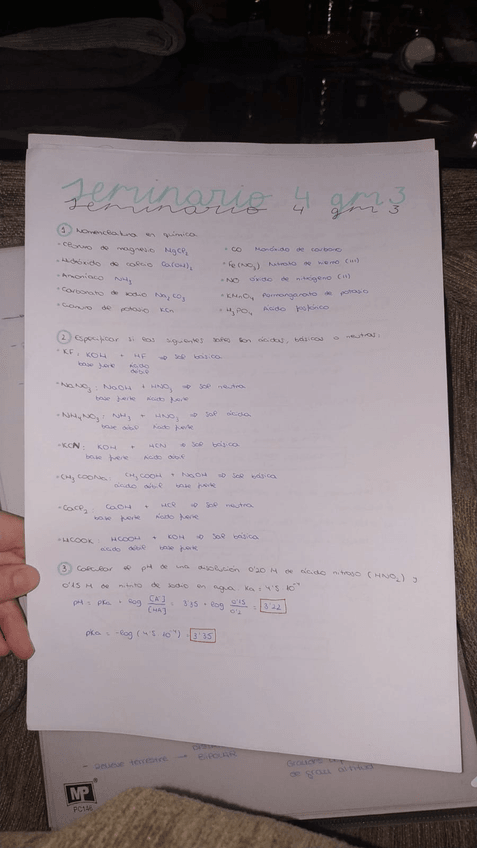 Seminario 4 gm3
1 Nomenclatura en química
· Cloruro de magnesio MgCl₂
· Hidróxido de calcio Ca(OH)₂
· Amoníaco NH₃
· Carbonato de sodio Na₂CO₃
· Cianuro de potasio KCN
· CO Monóxido de carbono
· Fe(NO₃)₂ Nitrato de hierro (II)
· NO Óxido de nitrógeno (II)
· KMnO₄ Permanganato de potasio
· H₃PO₄ Ácido fosfórico
2 Especificar si las siguientes sales son ácidas, básicas o neutras:
· KF: KOH + HF ⇒ Sal básica
base fuerte ácido
débil
· NaNO₃: NaOH + HNO₃ ⇒ Sal neutra
base fuerte ácido fuerte
· NH₄NO₃: NH₃ + HNO₃ ⇒ Sal ácida
base débil ácido fuerte
· KCN: KOH + HCN ⇒ Sal básica
base fuerte ácido débil
· CH₃COONa: CH₃COOH + NaOH ⇒ Sal básica
ácido débil base fuerte
· CaCl₂: CaOH + HCl ⇒ Sal neutra
base fuerte ácido fuerte
· HCOOK: HCOOH + KOH ⇒ Sal básica
ácido débil base fuerte
3 Calcular el pH de una disolución 0'20 M de ácido nitroso (HNO₂) y
0'15 M de nitrito de sodio en agua. Ka = 4'5 · 10⁻⁴
pH = pKa + log [A⁻]/[HA] = 3'35 + log 0'15/0'2 = 3'22
pKa = -log (4'5 · 10⁻⁴) = 3'35
BIPOLAR
de grasa
MP
PC146